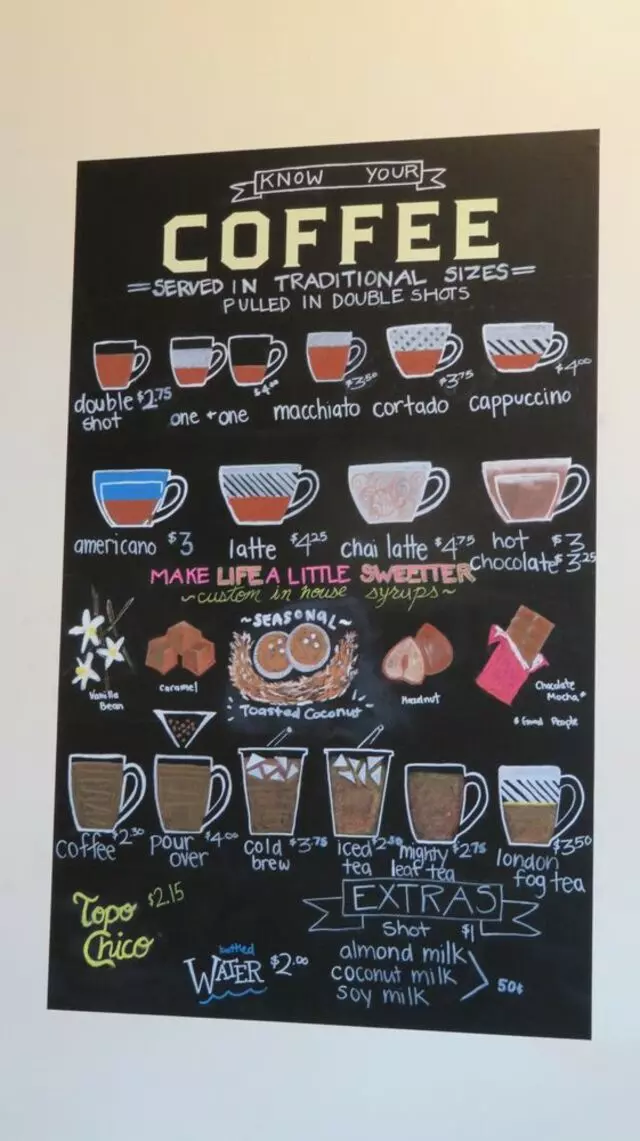 KNOW YOUR
COFFEE
=SERVED IN TRADITIONAL SIZES=
PULLED IN DOUBLE SHOTS
double $2.75
shot
one + one $4.00
macchiato $3.50
cortado $3.75
cappuccino $4.00
americano $3
latte $4.25
chai latte $4.75
hot $3
chocolate $3.25
MAKE LIFE A LITTLE SWEETTER
~custom in house syrups~
Vanilla
Bean
caramel
~SEASONAL~
Toasted Coconut
Hazelnut
Chocolate
Mocha*
People
coffee $2.50
pour $4.00
over
cold $3.75
brew
iced $2.50
tea
mighty $2.75
leaf tea
london $3.50
fog tea
Topo $2.15
Chico
EXTRAS
Shot $1
almond milk
coconut milk 50¢
soy milk
bottled
WATER $2.00